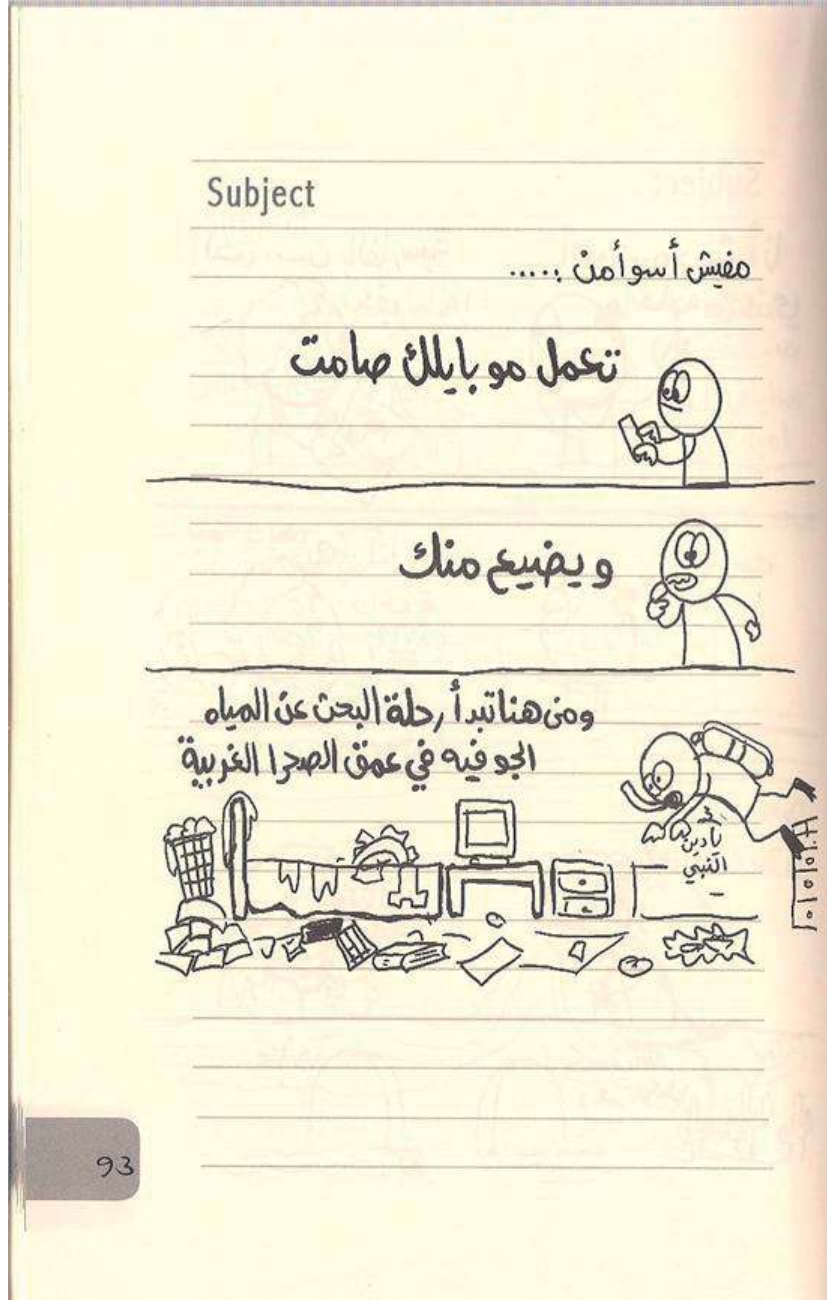 Subject
مفيش أسوأ من .....
تعمل موبايلك صامت
و يضيع منك
ومن هنا تبدأ رحلة البحث عن المياه
الجوفيه في عمق الصحرا الغربية
يادين
النبي
93